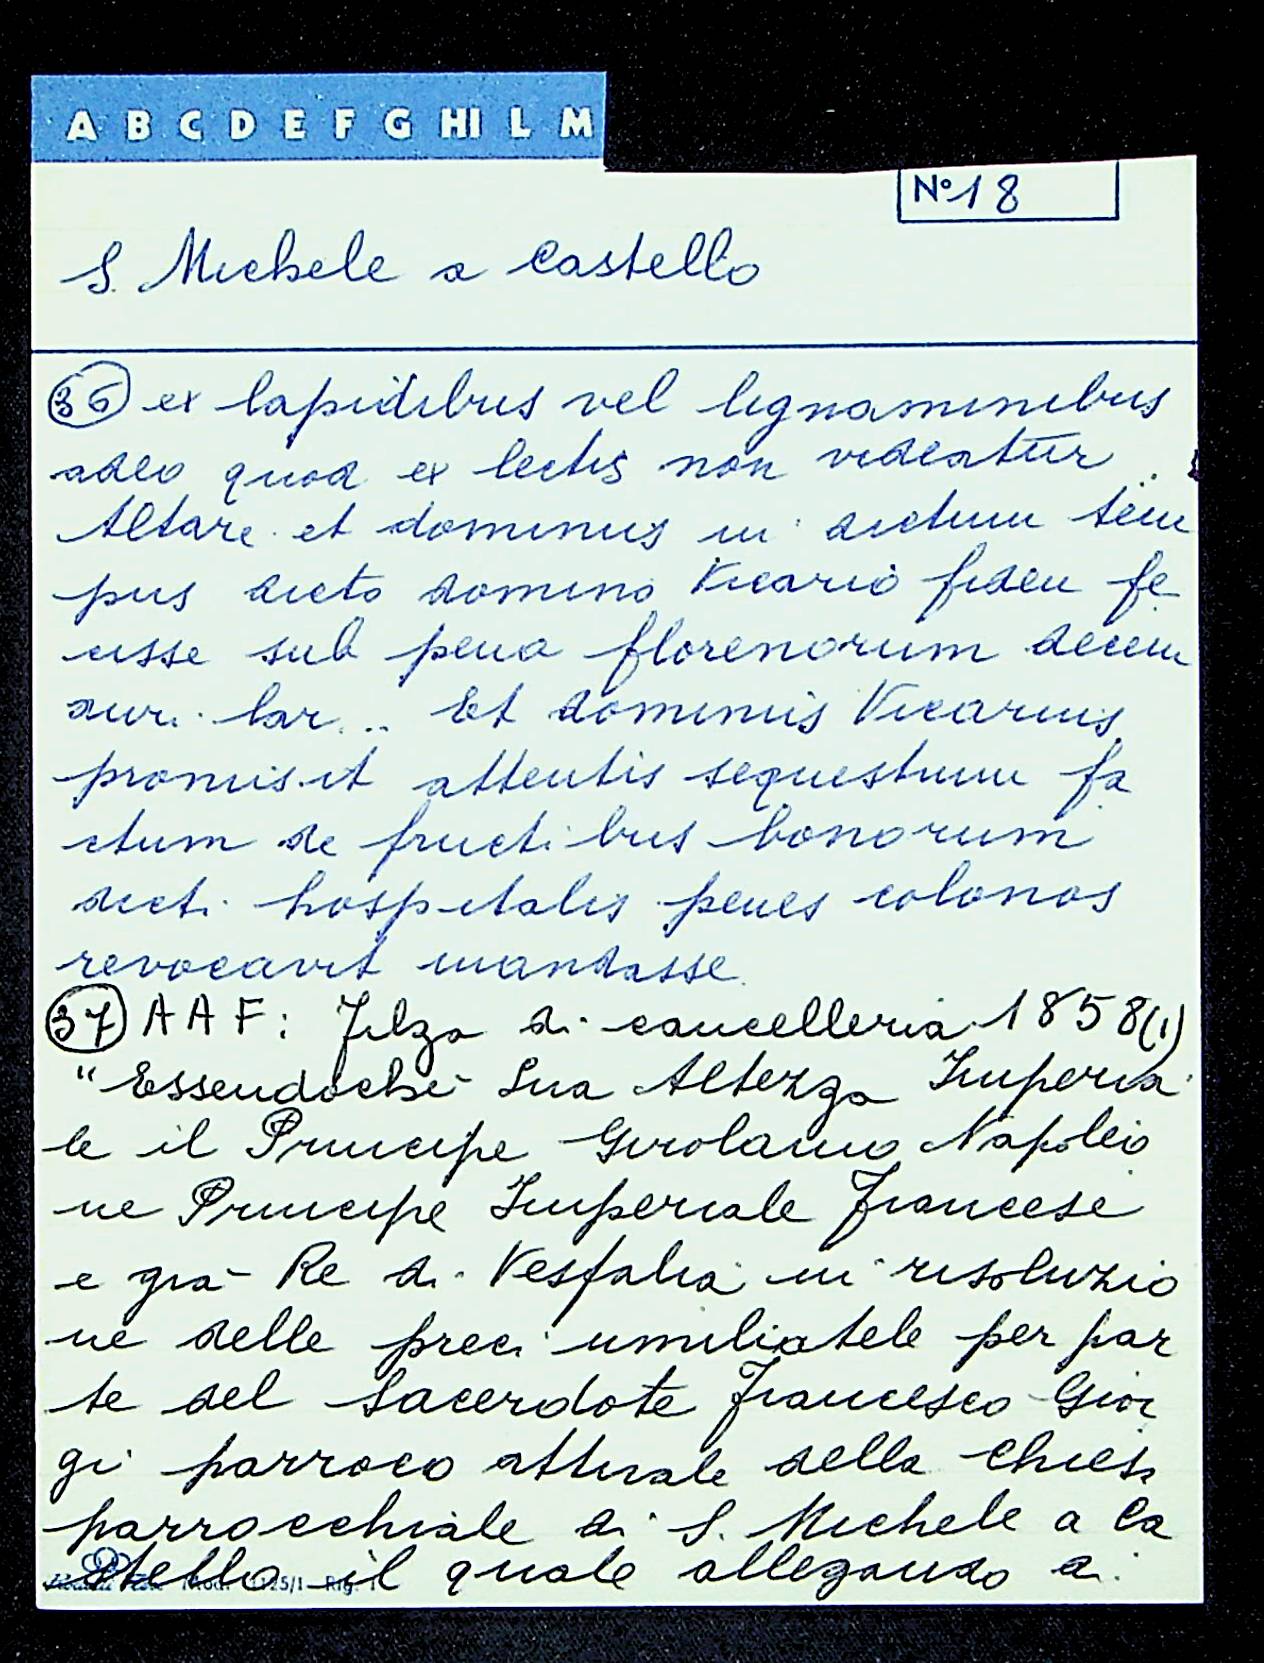 A B C D E F G HI L M
N° 18
S. Michele a Castello
36 ex lapidibus vel lignaminibus
adeo quod ex lectis non videatur
Altare et dominus in dictum tem
pus dicto domino Vicario fidem fe
cisse sub pena florenorum decem
auri lar... Et dominus Vicarius
promisit attentis sequestrum fa
ctum de fructibus bonorum
dicti hospitalis penes colonos
revocavit mandasse.
37 AAF: Filza di cancelleria 1858(1)
"Essendoché Sua Altezza Imperia
le il Principe Girolamo Napoleo
ne Principe Imperiale Francese
e già Re di Vesfalia in risoluzio
ne delle preci umiliatele per par
te del Sacerdote Francesco Gior
gi parroco attuale della Chiesa
parrocchiale di S. Michele a Ca
stello il quale allegando di
Mod. 1125/1 Rig. 1